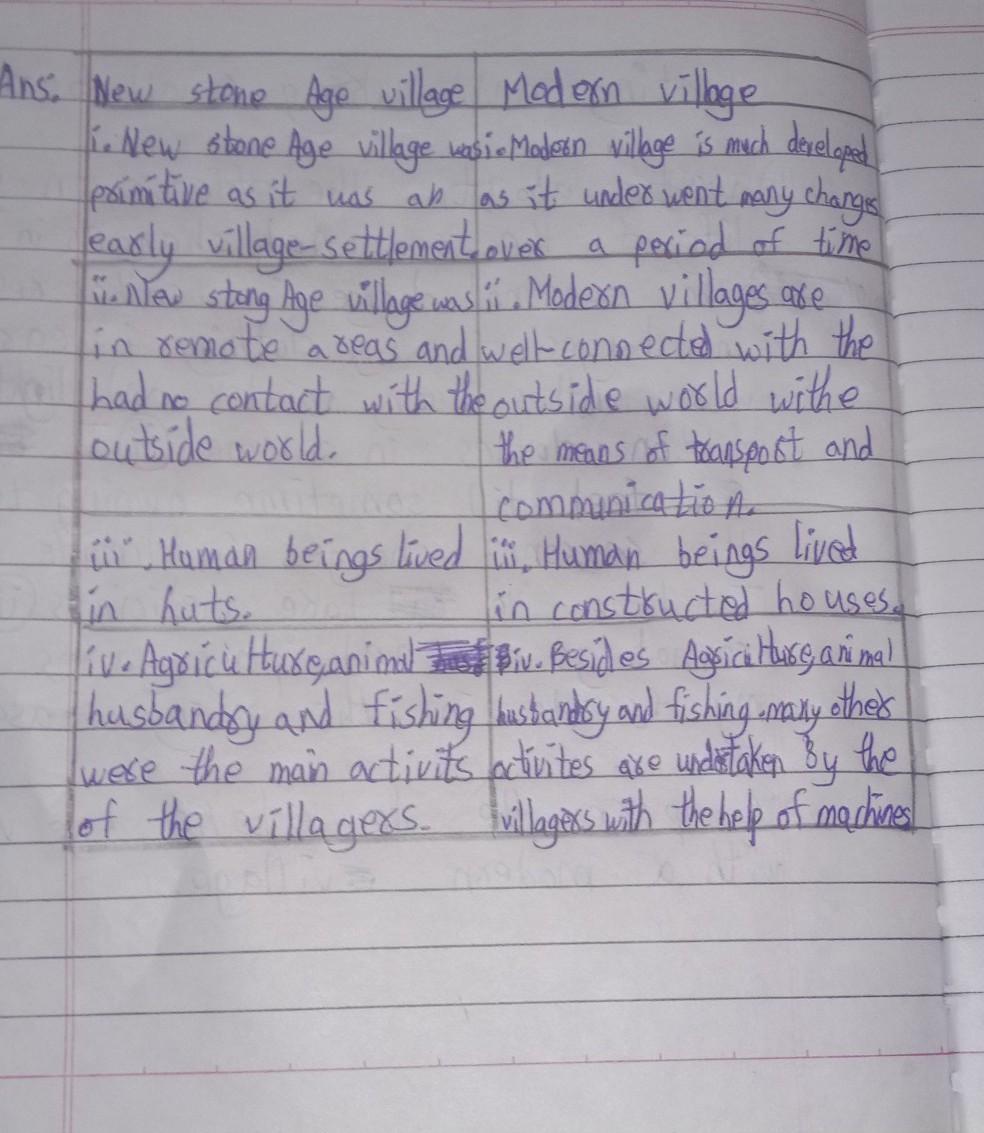 Ans. New stone Age village Modern village
i. New stone Age village was i. Modern village is much developed
primitive as it was an as it under went many changes
early village-settlement. over a period of time
ii. New stong Age village was ii. Modern villages are
in remote areas and well-connected with the
had no contact with the outside world withe
outside world. the means of transport and
communication.
iii. Human beings lived iii. Human beings lived
in huts. in constructed houses.
iv. Agriculture, animal iv. Besides Agriculture, animal
husbandry and fishing husbandry and fishing. many other
were the main activits activites are undertaken By the
of the villagers. villagers with the help of machines